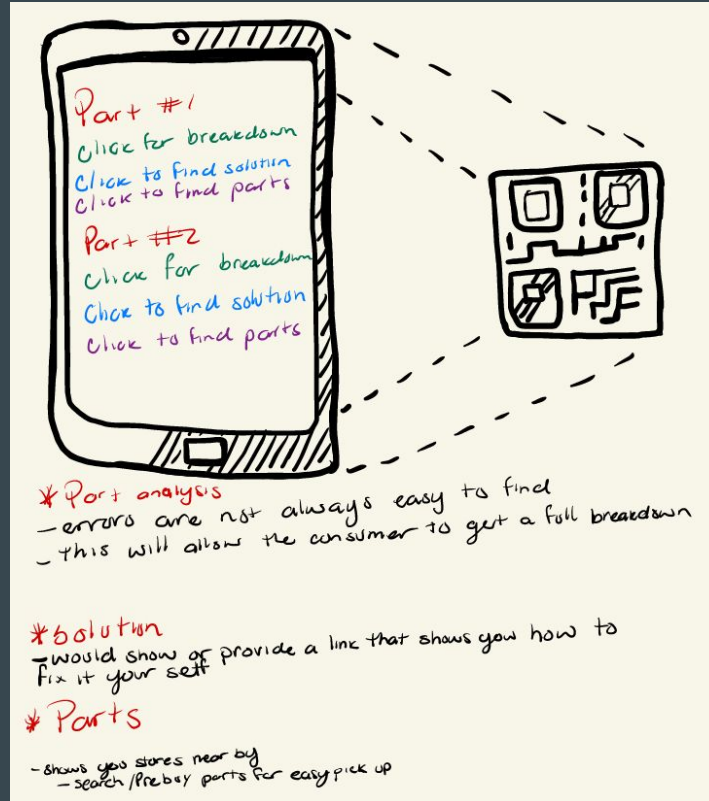 Part #1
Click for breakdown
Click to find solution
Click to find parts
Part #2
Click for breakdown
Click to find solution
Click to find parts
* Part analysis
- errors are not always easy to find
- this will allow the consumer to get a full breakdown
* Solution
- would show or provide a link that shows you how to
fix it your self
* Parts
- shows you stores near by
- search / Prebuy parts for easy pick up